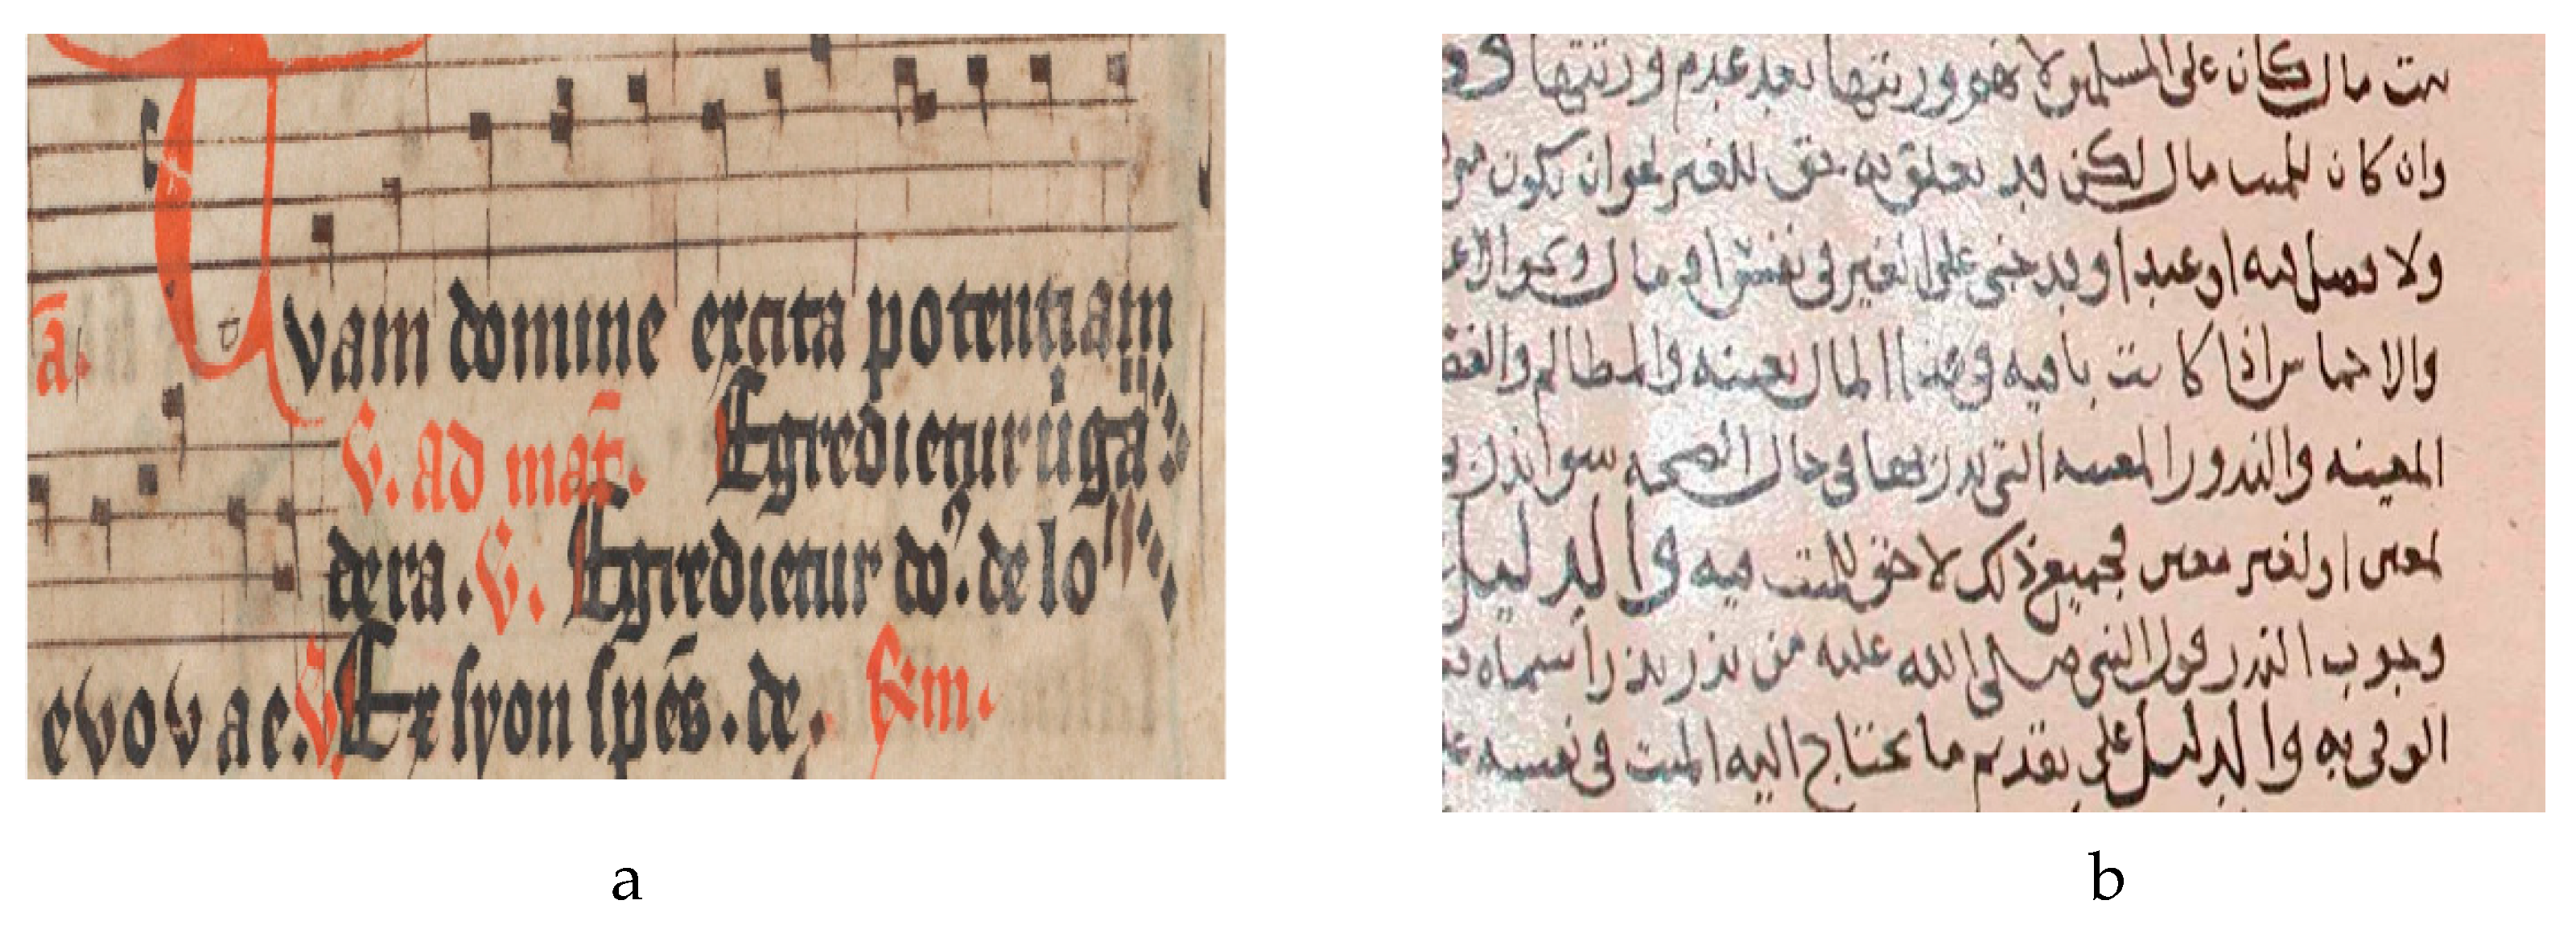 a.
Tuam domine excita potentiam
V. ad mat. Egredietur uirga
de ra. V. Egredietur do. de lo
evovae. V Ex syon spes. de, Km.
a
مال كان على المسلمين لا هو وريثها بعد عدم وريثها
وان كان للميت مال لكن قد تعلق به حق للغير نحو ان يكون
ولا فصل فيه او عبدا وقد جنى على الغير في نفس او مال ونحو
والاخماس اذا كانت باقيه في هذا المال بعينه والمظالم
المعينه والنذور المعينه التي نذر بها في حال الصحه سوا نذر
لمعين او لغير معين فجميع ذلك لا حق للميت فيه والدليل
وجوب النذر قول النبي صلى الله عليه من نذر نذرا سماه
الوفى به والدليل على تقديم ما يحتاج اليه الميت في نفسه
b